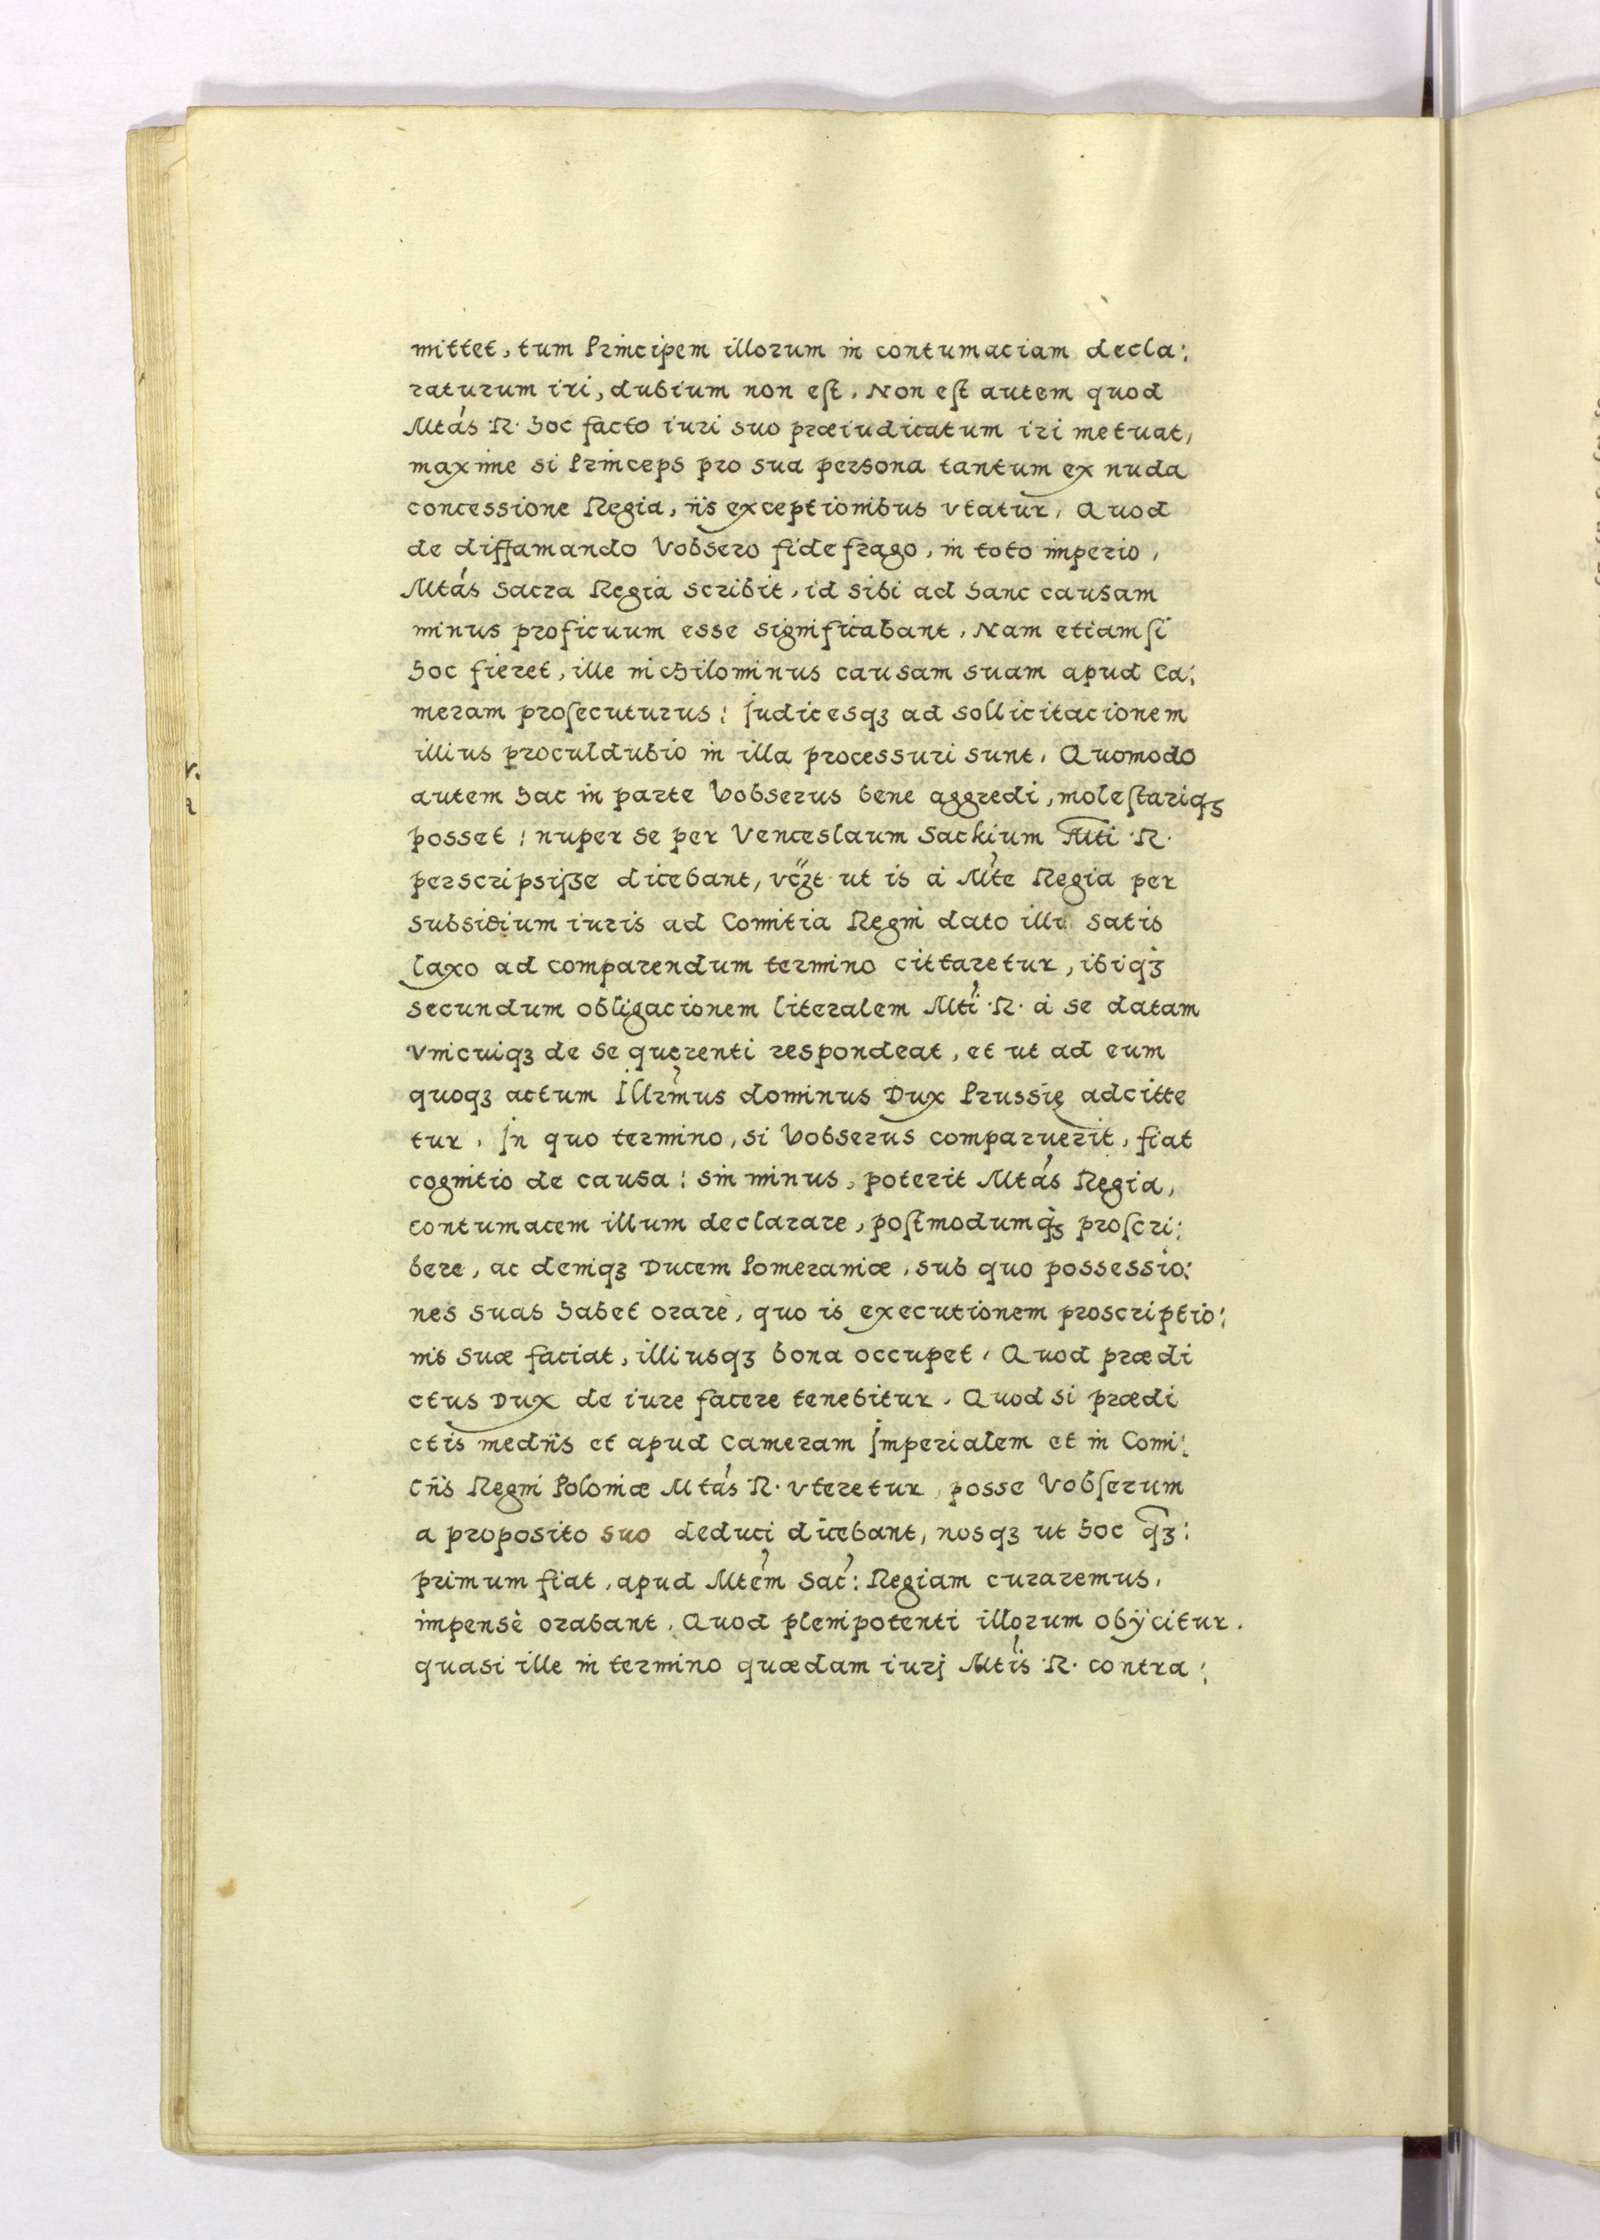 mittet, tum Principem illorum in contumaciam decla:
raturum iri, dubium non est. Non est autem quod
Mtás R. hoc facto iuri suo præiudicatum iri metuat,
maxime si Princeps pro sua persona tantum ex nuda
concessione Regia, iis exceptionibus vtatur. Quod
de diffamando Vobsero fidefrago, in toto imperio,
Mtás Sacra Regia scribit, id sibi ad hanc causam
minus proficuum esse significabant. Nam etiamsi
hoc fieret, ille nichilominus causam suam apud Ca:
meram prosecuturus: Judicesqȝ ad sollicitacionem
illius proculdubio in illa processuri sunt. Quomodo
autem hac in parte Vobserus bene aggredi, molestariqȝ
posset: nuper se per Venceslaum Sackium Mti R.
perscripsisse dicebant, vcȝt ut is á Mte Regia per
subsidium iuris ad Comitia Regni dato illi satis
laxo ad comparendum termino cittaretur, ibiqȝ
secundum obligacionem literalem Mti R. á se datam
Vnicuiqȝ de se quęrenti respondeat, et ut ad eum
quoqȝ actum Illrmus dominus Dux Prussię adcitte
tur. In quo termino, si Vobserus comparuerit, fiat
cognitio de causa: sin minus, poterit Mtás Regia,
contumacem illum declarare, postmodumqȝ proscri:
bere, ac deniqȝ Ducem Pomeraniæ, sub quo possessio:
nes suas habet orare, quo is executionem proscriptio:
nis suæ faciat, illiusqȝ bona occupet. Quod prædi
ctus Dux de iure facere tenebitur. Quod si prædi
ctis mediis et apud Cameram Imperialem et in Comi:
ciis Regni Poloniæ Mtás R. vteretur, posse Vobserum
a proposito suo deduci dicebant, nosqȝ ut hoc qȝ:
primum fiat, apud Mtem Sac: Regiam curaremus,
impensè orabant. Quod plenipotenti illorum obÿcitur.
quasi ille in termino quædam iurj Mtis R. contra: